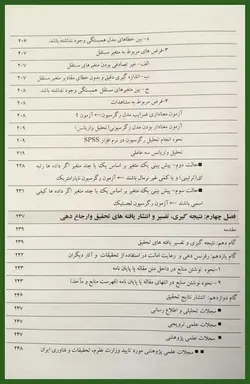 ۵- بین خطاهای مدل همبستگی وجود نداشته باشد. ۲۰۶
۳-فرض های مربوط به متغیر مستقل ۲۰۷
الف- غیر تصادفی بودن متغیر های مستقل ۲۰۷
ب- اندازه گیری دقیق و بدون خطای مقادیر متغیر مستقل ۲۰۷
ج- بین متغیرهای مستقل همبستگی وجود نداشته باشد. ۲۰۸
۴-فرض مربوط به مشاهدات ۲۰۸
آزمون معناداری ضرایب مدل رگرسیون— آزمون t ۲۰۸
آزمون معنادار بودن مدل رگرسیونی( تحلیل واریانس) ۲۰۹
نحوه انجام تحلیل رگرسیون در نرم افزار SPSS ۲۰۹
تحلیل واریانس سه عاملی ۲۱۹
حالت دوم- پیش بینی یک متغیر بر اساس یک یا چند متغیر اگر داده ها رتبه ۲۲۸
ای(ترتیبی) و یا کمی غیر نرمال باشند ← آزمون رگرسیون ناپارامتریک
حالت سوم- پیش بینی یک متغیر بر اساس یک یا چند متغیر اگر داده ها کیفی ۲۳۱
اسمی باشند ← آزمون رگرسیون لجستیک
فصل چهارم: نتیجه گیری، تفسیر و انتشار یافته های تحقیق وارجاع دهی ۲۳۷
مقدمه ۲۳۹
گام دهم: نتیجه گیری و تفسیر یافته های تحقیق ۲۳۹
گام یازدهم: رفرنس دهی و رعایت امانت در استفاده از تحقیقات و آثار دیگران
۱-نحوه نوشتن منابع در داخل متن مقاله یا پایان نامه
۲-نحوه نوشتن منابع در انتهای مقاله یا پایان نامه (فهرست منابع و مآخذ)
گام دوازدهم: انتشار نتایج تحقیق
مجلات تحلیلی و اطلاع رسانی ۲۴۷
مجلات علمی ترویجی ۲۴۷
مجلات علمی پژوهشی ۲۴۷
مجلات علمی پژوهشی مورد تایید وزارت علوم، تحقیقات و فناوری ایران ۲۴۸